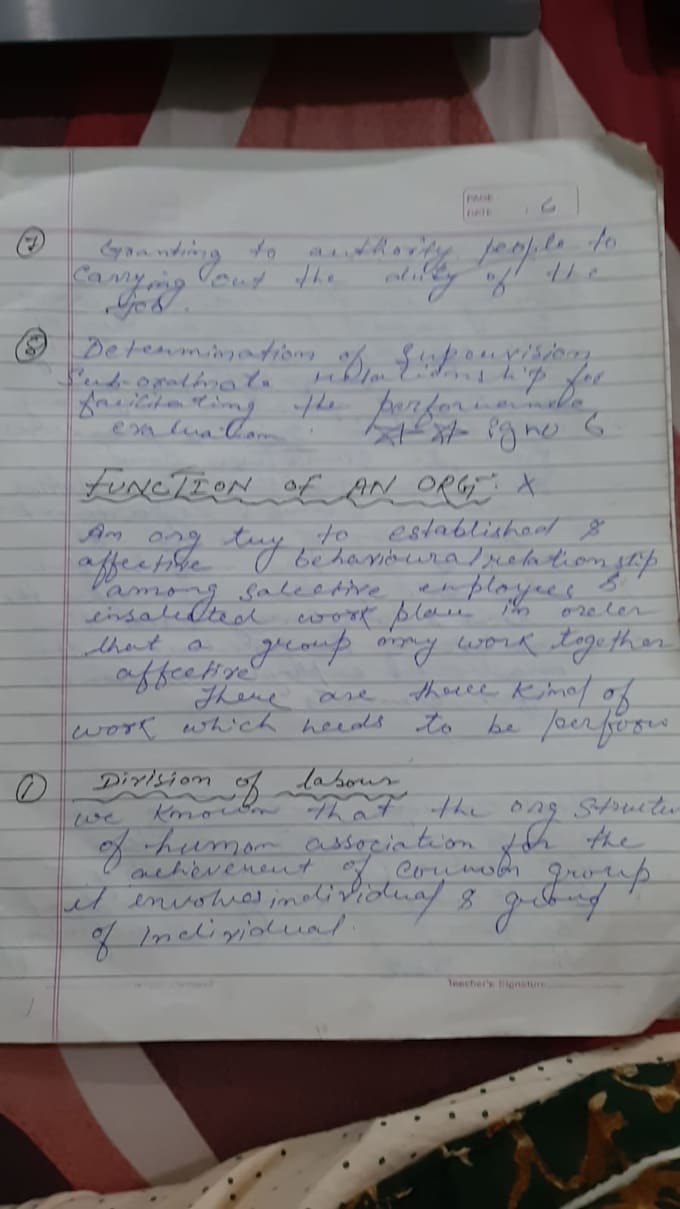 PAGE
DATE 6
⑦ Granting to authority people to
carrying out the duty of the
Job.
⑧ Determination of Supourvision
Sub-oradinate relationship for
facilitating the performance
evaluation. no 6
FUNCTION OF AN ORGT. X
An org try to established &
affective behavioural relationship
among salective employees &
work place in order
that a group may work together
affective
There are three kind of
work which needs to be perform
① Division of labour
we known that the org structu
of human association for the
achievement of common group
it envolves individual & group
of individual.
Teacher's Signature